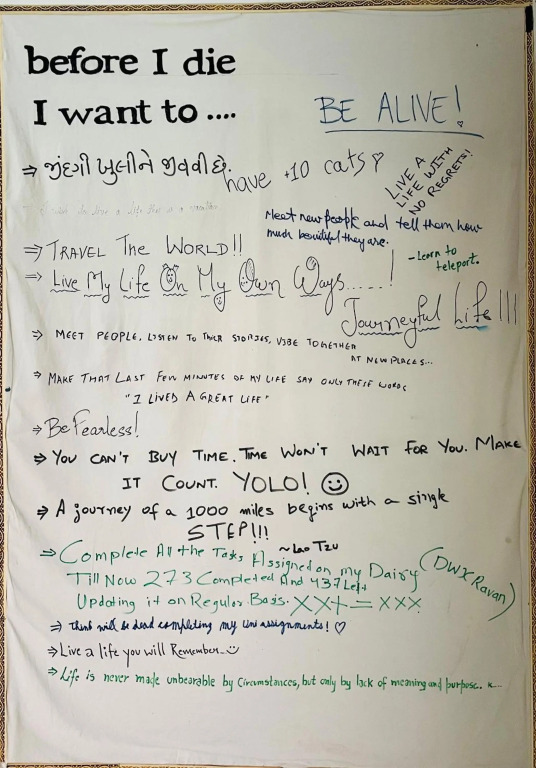 before I die
I want to ....
BE ALIVE!
⇒ જીંદગી ખુલીને જીવવી છે.
have +10 cats
LIVE A
LIFE WITH
NO REGRETS!
to live a life that is a
Meet new people and tell them how
much beautiful they are.
⇒ TRAVEL THE WORLD!!
- Learn to
teleport.
⇒ Live My Life On My Own Ways.....!
Journeyful Life!!!
⇒ MEET PEOPLE, LISTEN TO THEIR STORIES, VIBE TOGETHER
AT NEW PLACES...
⇒ MAKE THAT LAST FEW MINUTES OF MY LIFE SAY ONLY THESE WORDS
"I LIVED A GREAT LIFE"
⇒ Be Fearless!
⇒ YOU CAN'T BUY TIME. TIME WON'T WAIT FOR YOU. MAKE
IT COUNT. YOLO! ☺
⇒ A journey of a 1000 miles begins with a single
STEP!!!
~ Lao Tzu
⇒ Complete All the Tasks Assigned on my Dairy
(DWX Ravan)
Till Now 273 Completed And 437 Left
Updating it on Regular Basis. XX+=XXX
⇒ Think will be dead completing my uni assignments! ♡
⇒ Live a life you will Remember..☺
⇒ Life is never made unbearable by Circumstances, but only by lack of meaning and purpose.